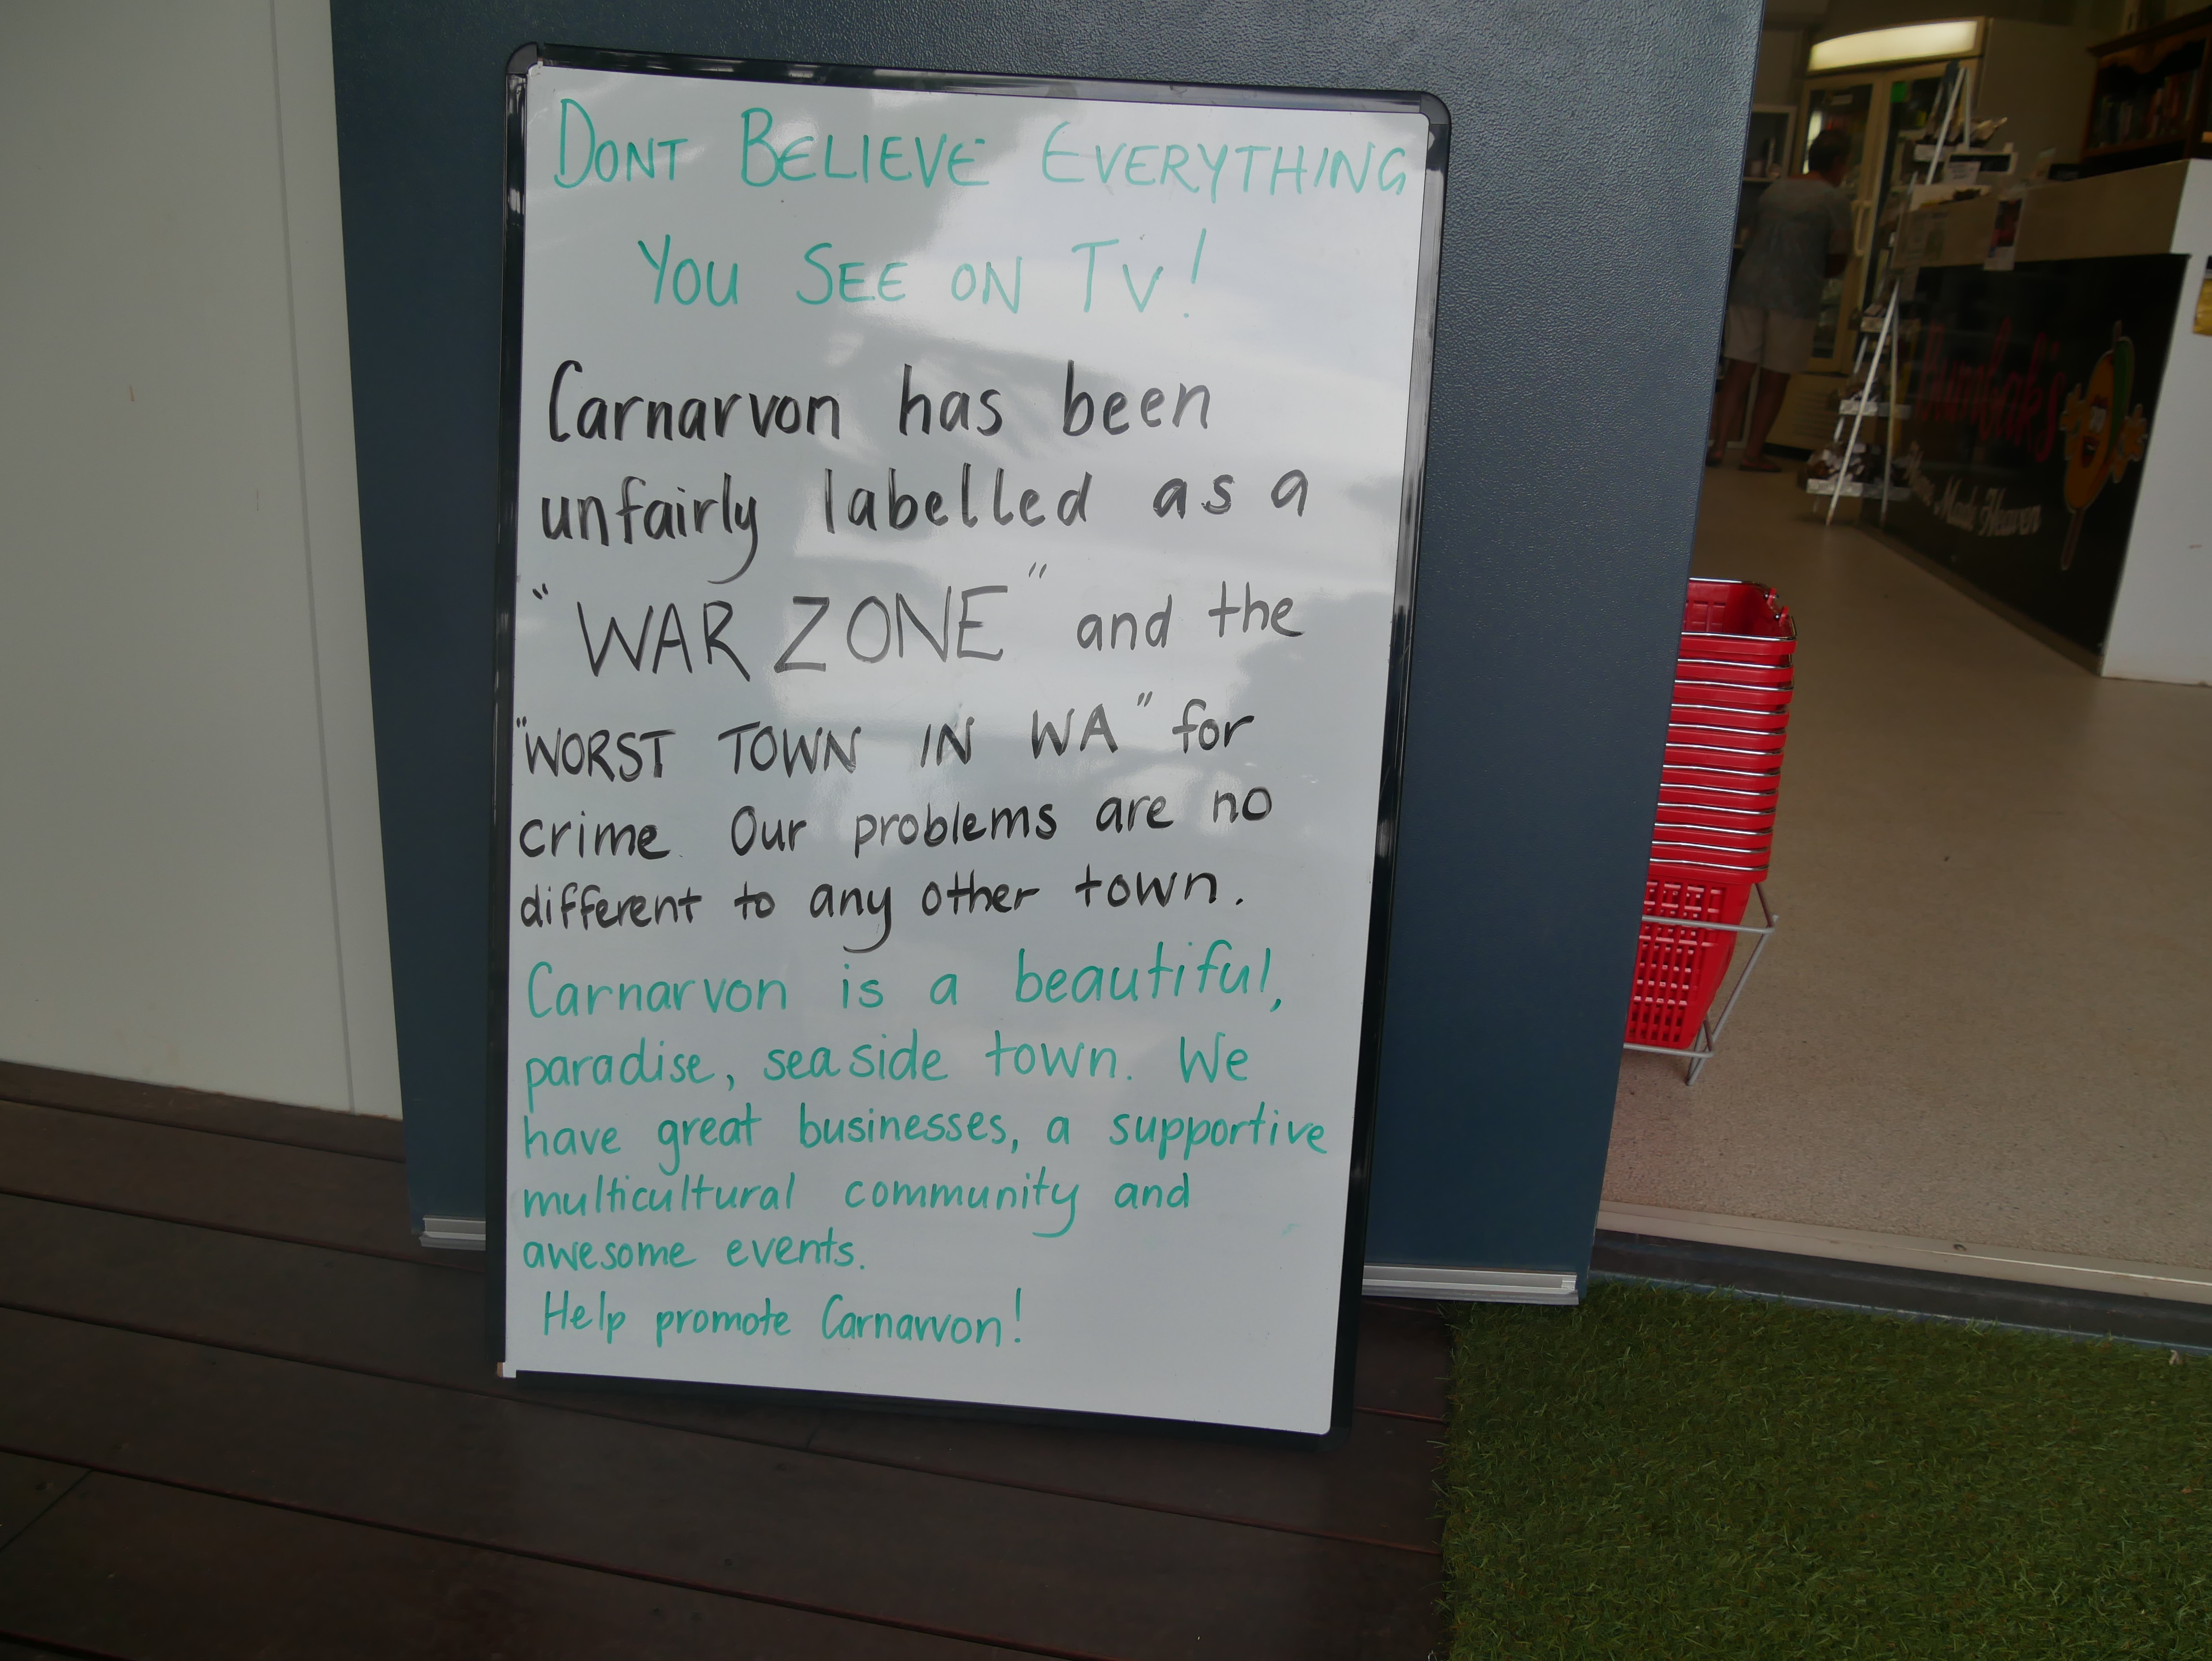 DONT BELIEVE EVERYTHING
YOU SEE ON TV!
Carnarvon has been
unfairly labelled as a
"WAR ZONE" and the
"WORST TOWN IN WA" for
crime. Our problems are no
different to any other town.
Carnarvon is a beautiful,
paradise, seaside town. We
have great businesses, a supportive
multicultural community and
awesome events.
Help promote Carnarvon!
Made Heaven